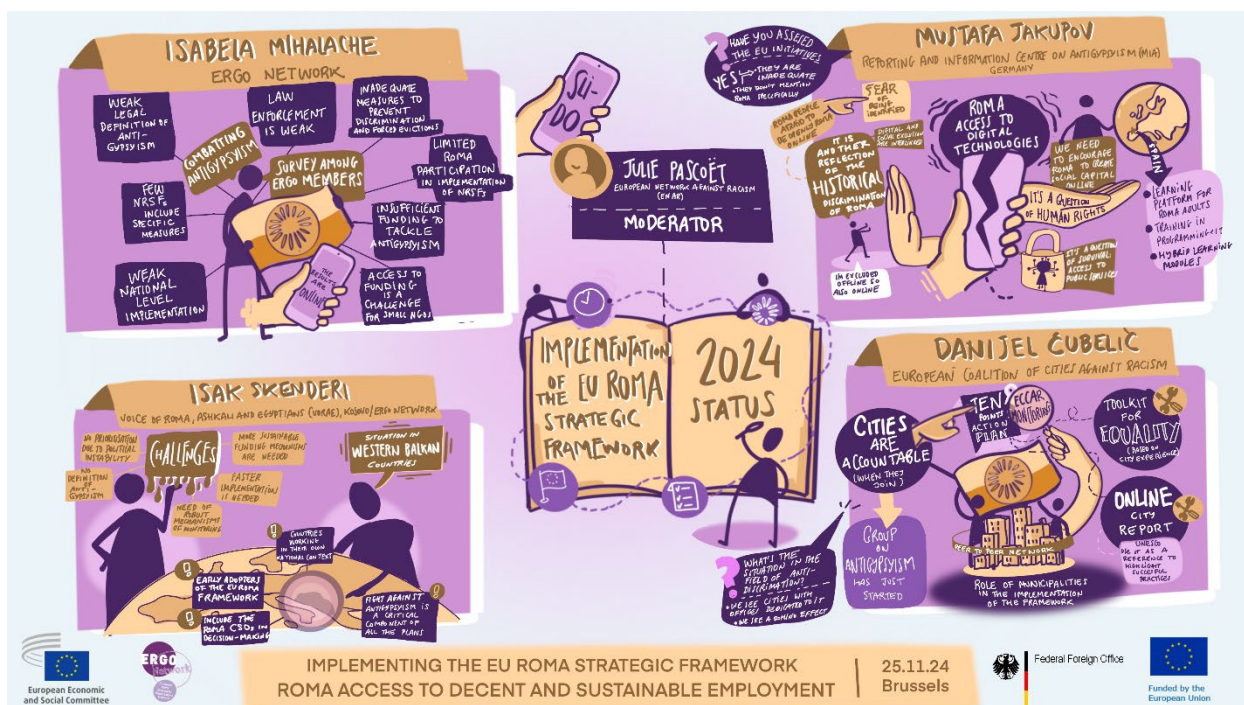 ISABELA MIHALACHE
ERGO NETWORK
WEAK
LEGAL
DEFINITION OF
ANTI-
GYPSYISM
LAW
ENFORCEMENT
IS WEAK
INADEQUATE
MEASURES TO
PREVENT
DISCRIMINATION
AND FORCED EVICTIONS
COMBATTING
ANTIGYPSYISM
SURVEY AMONG
ERGO MEMBERS
LIMITED
ROMA
PARTICIPATION
IN IMPLEMENTATION
OF NRSFs
FEW
NRSFs
INCLUDE
SPECIFIC
MEASURES
INSUFFICIENT
FUNDING TO
TACKLE
ANTIGYPSYISM
WEAK
NATIONAL
LEVEL
IMPLEMENTATION
THE
RESULTS
ARE
ONLINE
ACCESS TO
FUNDING
IS A
CHALLENGE
FOR SMALL NGOS
SLI-
DO
JULIE PASCOËT
EUROPEAN NETWORK AGAINST RACISM
(ENAR)
MODERATOR
IMPLEMENTATION
OF THE EU ROMA
STRATEGIC
FRAMEWORK
2024
STATUS
HAVE YOU ASSESED
THE EU INITIATIVES
YES
THEY ARE
INADEQUATE
THEY DON'T MENTION
ROMA SPECIFICALLY
MUSTAFA JAKUPOV
REPORTING AND INFORMATION CENTRE ON ANTIGYPSYISM (MIA)
GERMANY
ROMA PEOPLE
AFRAID TO
BE OPENLY ROMA
ONLINE
FEAR
OF
BEING
IDENTIFIED
DIGITAL AND
SOCIAL EXCLUSION
ARE INTERLINKED
IT IS
AND THEIR
REFLECTION
OF THE
HISTORICAL
DISCRIMINATION
OF ROMA
ROMA
ACCESS TO
DIGITAL
TECHNOLOGIES
WE NEED
TO ENCOURAGE
ROMA TO CREATE
SOCIAL CAPITAL
ONLINE
IT'S A QUESTION
OF HUMAN RIGHTS
IT'S A QUESTION
OF SURVIVAL:
ACCESS TO
PUBLIC SERVICES
I'M EXCLUDED
OFFLINE SO
ALSO ONLINE
SPAIN
LEARNING
PLATFORM FOR
ROMA ADULTS
TRAINING IN
PROGRAMMING + IT
HYBRID LEARNING
MODULES
ISAK SKENDERI
VOICE OF ROMA, ASHKALI AND EGYPTIANS (VORAE), KOSOVO/ERGO NETWORK
NO PRIORITISATION
DUE TO POLITICAL
INSTABILITY
CHALLENGES
MORE SUSTAINABLE
FUNDING MECHANISMS
ARE NEEDED
NO
DEFINITION
OF ANTI-
GYPSYISM
FASTER
IMPLEMENTATION
IS NEEDED
NEED OF
ROBUST
MECHANISMS
OF MONITORING
SITUATION IN
WESTERN BALKAN
COUNTRIES
COUNTRIES
WORKING
IN THEIR OWN
NATIONAL CONTEXT
EARLY ADOPTERS
OF THE EU ROMA
FRAMEWORK
INCLUDE THE
ROMA CSOs IN
DECISION-MAKING
FIGHT AGAINST
ANTIGYPSYISM IS
A CRITICAL
COMPONENT OF
ALL THE PLANS
DANIJEL ĆUBELIĆ
EUROPEAN COALITION OF CITIES AGAINST RACISM
CITIES
ARE
ACCOUNTABLE
(WHEN THEY
JOIN)
TEN
POINTS
ACTION
PLAN
ECCAR
MONITORING
TOOLKIT
FOR
EQUALITY
(BASED ON
CITY EXPERIENCE)
ONLINE
CITY
REPORT
UNESCO
USE IT AS A
REFERENCE TO
HIGHLIGHT
SUCCESSFUL
PRACTICES
GROUP
ON
ANTIGYPSYISM
HAS JUST
STARTED
PEER TO PEER NETWORK
ROLE OF MUNICIPALITIES
IN THE IMPLEMENTATION
OF THE FRAMEWORK
WHAT'S THE
SITUATION IN THE
FIELD OF ANTI-
DISCRIMINATION?
WE SEE CITIES WITH
OFFICES DEDICATED TO IT
WE SEE A DOMINO EFFECT
European Economic
and Social Committee
ERGO
Network
IMPLEMENTING THE EU ROMA STRATEGIC FRAMEWORK
ROMA ACCESS TO DECENT AND SUSTAINABLE EMPLOYMENT
25.11.24
Brussels
Federal Foreign Office
Funded by the
European Union